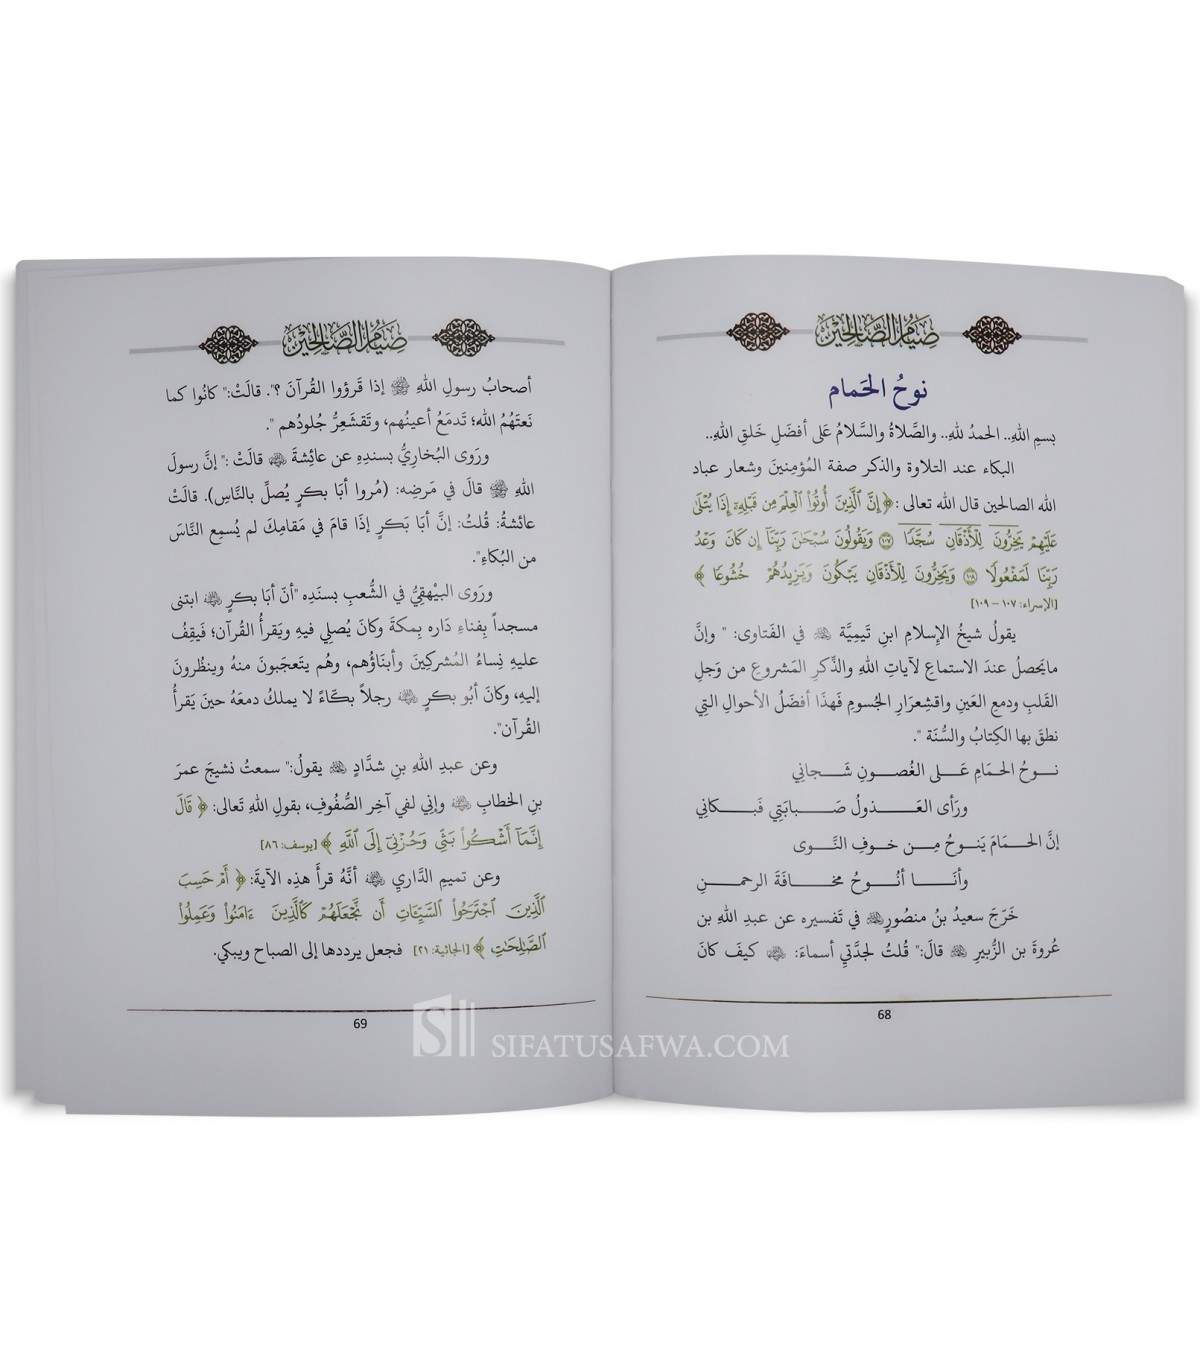 صيام الصالحين
نوحُ الحَمام
بسمِ اللهِ.. الحمدُ للهِ.. والصَّلاةُ والسَّلامُ عَلى أفضَلِ خَلقِ اللهِ..
البكاء عند التلاوة والذكر صفة المُؤمِنينَ وشعار عباد
الله الصالحين قال الله تعالى :﴿إِنَّ ٱلَّذِينَ أُوتُوا۟ ٱلْعِلْمَ مِن قَبْلِهِۦٓ إِذَا يُتْلَىٰ
عَلَيْهِمْ يَخِرُّونَ لِلْأَذْقَانِ سُجَّدًا ۝١٠٧ وَيَقُولُونَ سُبْحَٰنَ رَبِّنَآ إِن كَانَ وَعْدُ
رَبِّنَا لَمَفْعُولًا ۝١٠٨ وَيَخِرُّونَ لِلْأَذْقَانِ يَبْكُونَ وَيَزِيدُهُمْ خُشُوعًا ﴾
[الإسراء: ١٠٧ – ١٠٩]
يقولُ شيخُ الإسلامِ ابنِ تَيمِيَّة في الفَتاوى: " وإنَّ
مايَحصلُ عندَ الاستماعِ لآياتِ اللهِ والذَّكرِ المَشروعِ من وَجلِ
القَلبِ ودمعِ العَينِ واقشِعرَارِ الجُسومِ فَهذَا أفضَلُ الأحوالِ التِي
نطقَ بها الكِتابُ والسُّنَة ".
نوحُ الحمَامِ عَلى الغُصونِ شَجاني
ورَأى العَذولُ صَبابَتِي فَبكاني
إنَّ الحمَامَ يَنوحُ مِن خوفِ النَّوى
وأنَا أنُوحُ مخافَةَ الرحمنِ
خَرّجَ سعيدُ بنُ منصُورٍ في تَفسيره عن عبدِ اللهِ بن
عُروةَ بن الزُّبيرِ قالَ:" قُلتُ لجدَّتيِ أسماءَ: كيفَ كانَ
68
صيام الصالحين
أصحابُ رسولِ اللهِ ﷺ إذا قَرؤوا القُرآنَ ؟". قالَتْ:" كانُوا كما
نَعتَهُمُ الله؛ تَدمَعُ أعينُهم، وتَقشَعِرُّ جُلودُهم ".
ورَوى البُخارِيُّ بسندِهِ عن عائِشةَ قالَتْ :" إنَّ رسولَ
اللهِ ﷺ قالَ في مَرضِه: (مُروا أبَا بكرٍ يُصلِّ بالنَّاسِ). قالَتْ
عائشةُ: قُلتُ: إنَّ أبَا بَكرٍ إذَا قامَ في مَقامِكَ لم يُسمِع النَّاسَ
من البُكاءِ".
ورَوى البيْهقِيُّ في الشُّعبِ بسندِه "أنَ أبَا بكرٍ ابتنى
مسجداً بِفناءِ دَاره بِمكةَ وكانَ يُصلِي فيهِ ويَقرأُ القُرآن؛ فَيقِفُ
عليهِ نِساءُ المُشركِينَ وأبنَاؤُهم، وهُم يتَعجَبونَ منهُ وينظُرونَ
إليهِ، وكانَ أبُو بكرٍ رجلاً بكَاءً لا يملكُ دمعَهُ حينَ يَقرأُ
القُرآن".
وعن عبدِ اللهِ بنِ شدَّادٍ يقولُ:" سمعتُ نشيجَ عمرَ
بنِ الخطابِ وإنِي لفي آخِر الصُّفُوفِ، بقولِ اللهِ تَعالى: ﴿ قَالَ
إِنَّمَآ أَشْكُوا۟ بَثِّى وَحُزْنِىٓ إِلَى ٱللَّهِ ﴾ [يوسف: ٨٦]
وعن تميمِ الدَّاريِ أنَّهُ قرأَ هذِه الآيَةَ: ﴿ أَمْ حَسِبَ
ٱلَّذِينَ ٱجْتَرَحُوا۟ ٱلسَّيِّـَٔاتِ أَن نَّجْعَلَهُمْ كَٱلَّذِينَ ءَامَنُوا۟ وَعَمِلُوا۟
ٱلصَّٰلِحَٰتِ ﴾ [الجاثية: ٢١] فجعل يرددها إلى الصباح ويبكي.
69
SIFATUSAFWA.COM